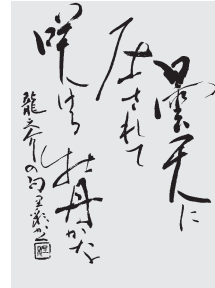 曇天に
圧されて
咲ける
牡丹かな
龍之介の句